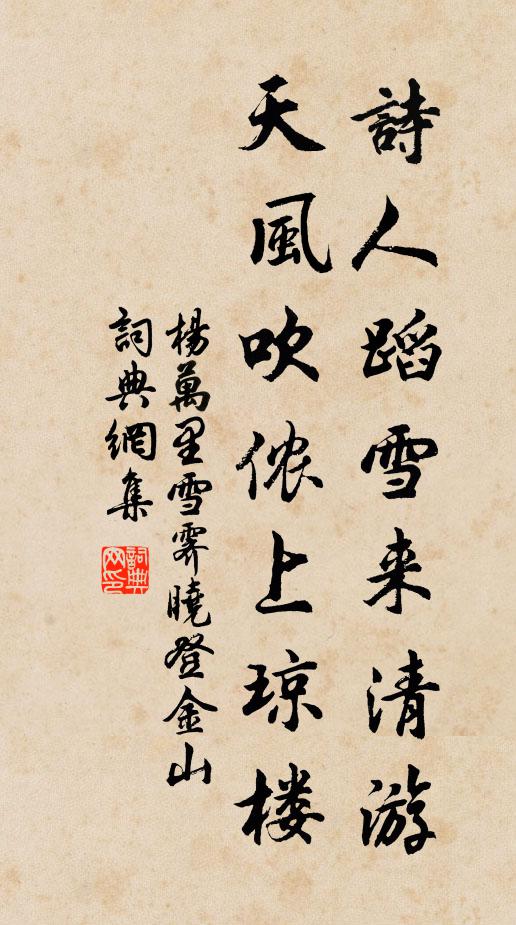 詩人蹈雪来清游
天風吹侬上琼楼
楊萬里雪霽曉登金山
詞典網集
詞典網印